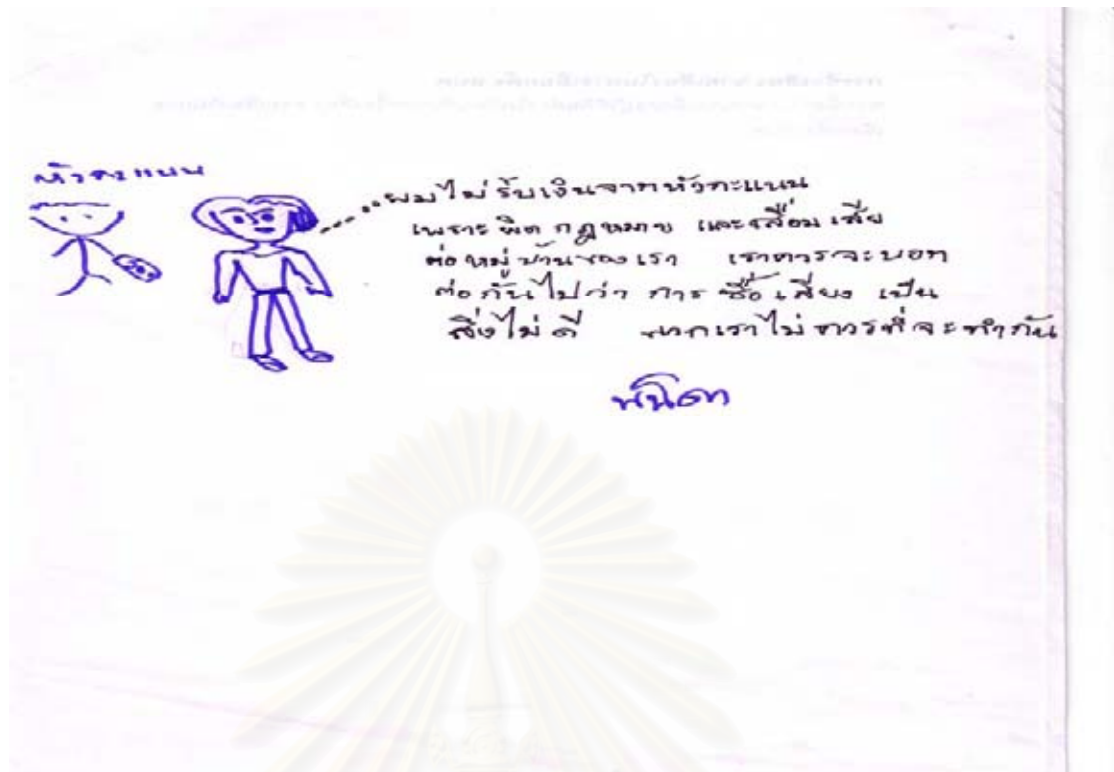 หัวคะแนน
ผมไม่รับเงินจากหัวคะแนน
เพราะผิดกฎหมาย และเสื่อมเสีย
ต่อหมู่บ้านของเรา เราควรจะบอก
ต่อกันไปว่า การซื้อเสียง เป็น
สิ่งไม่ดี พวกเราไม่ควรที่จะทำกัน